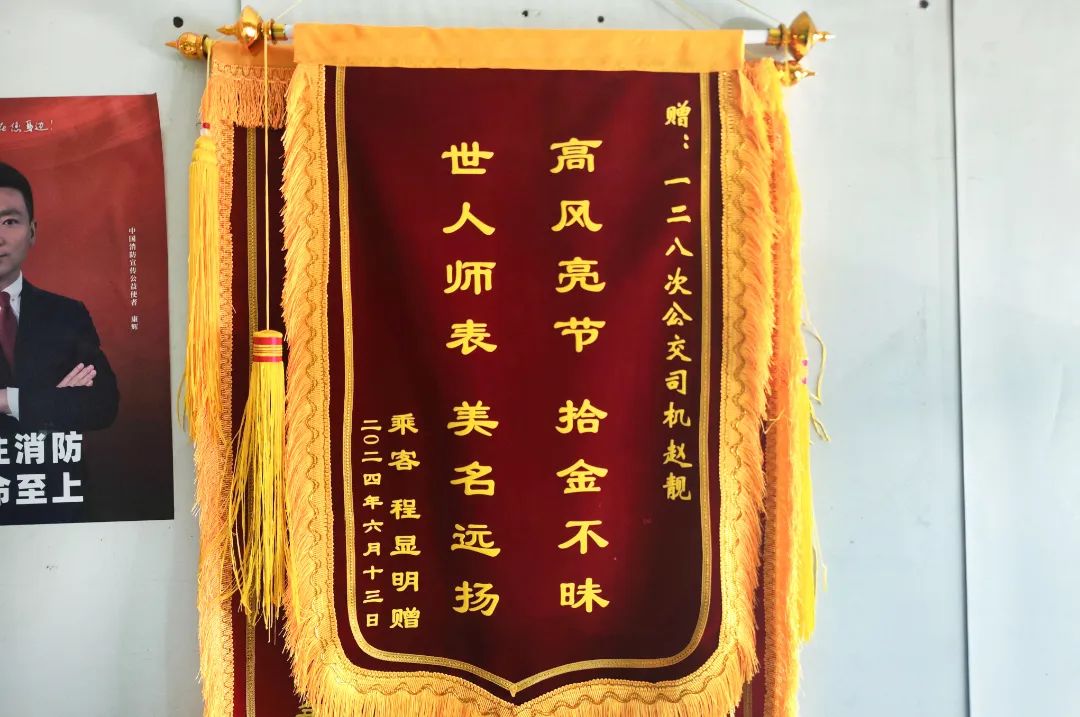 赠：一二八次公交司机赵靓
高风亮节 拾金不昧
世人师表 美名远扬
乘客 程显明赠
二〇二四年六月十三日
中国消防宣传公益使者 康辉
消防
至上